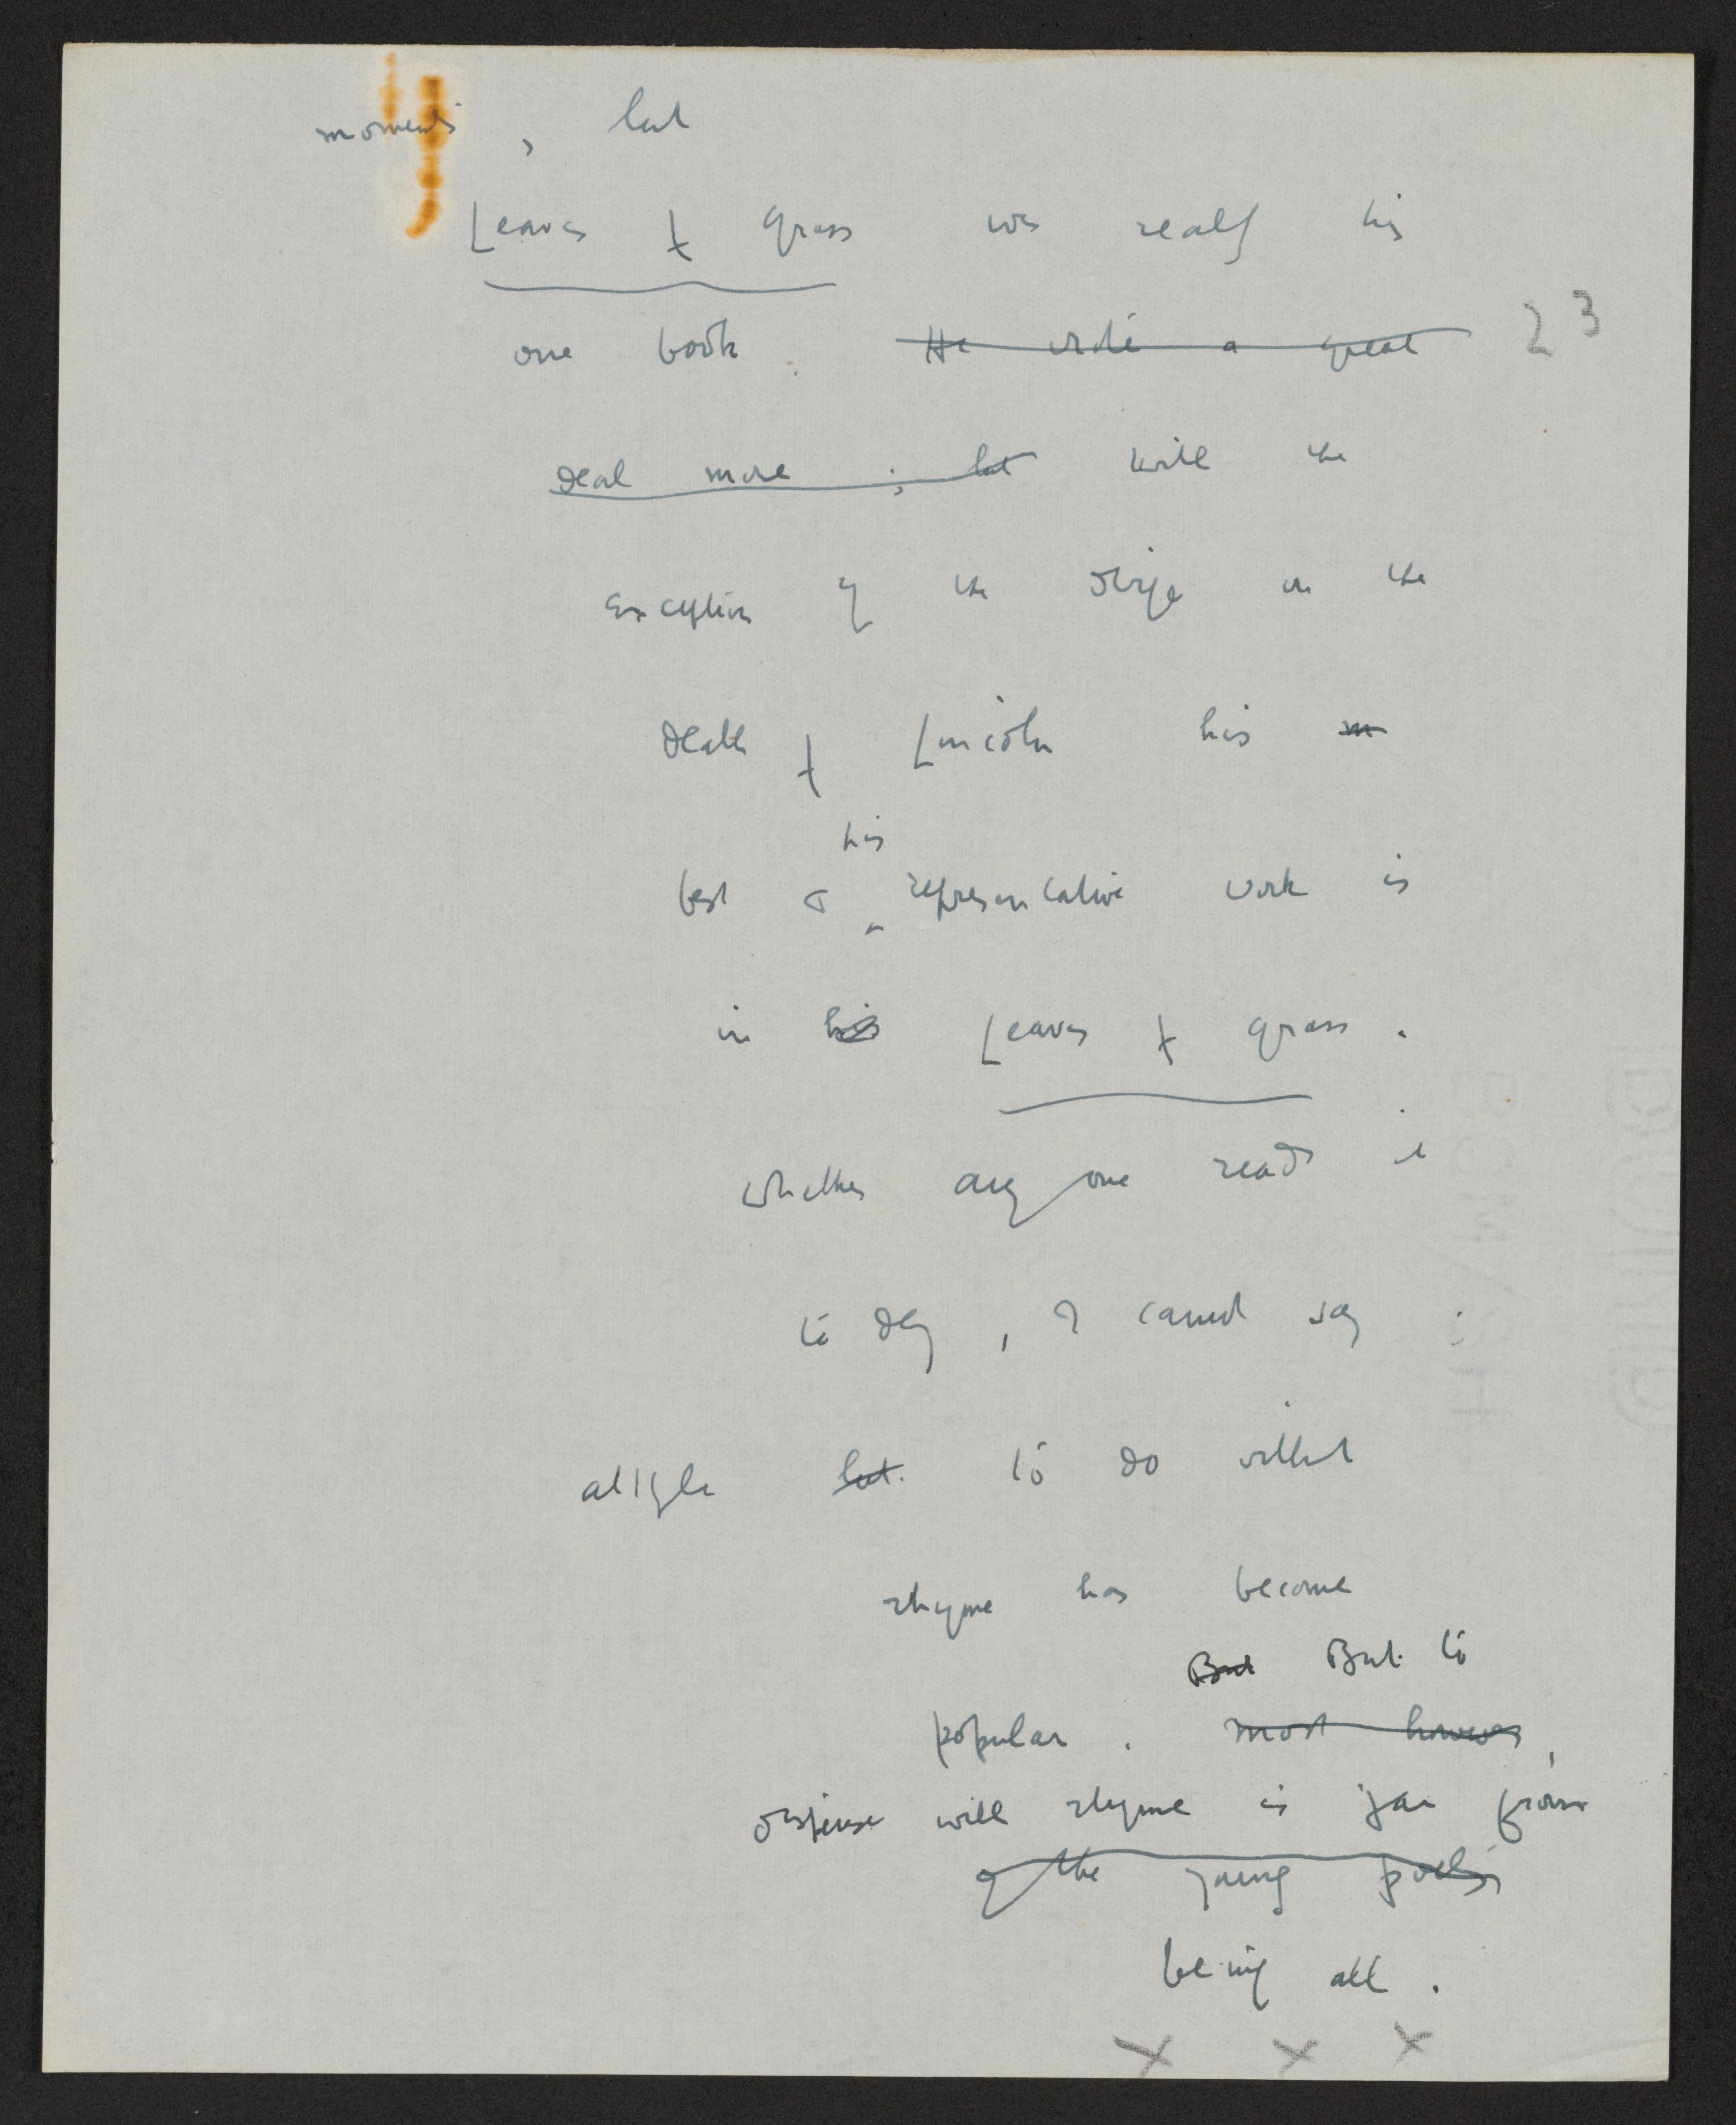 moments, but
Leaves of Grass was really his
one book. He wrote a great 23
deal more; but with the
exception of the dirge on the
death of Lincoln his m
his
best & representative work is
in his Leaves of Grass.
Whether any one reads it
to day, I cannot say.
but to do without
rhyme has become
But But to
popular. most however,
dispense with rhyme is far from
of the young poets
being all.
x x x